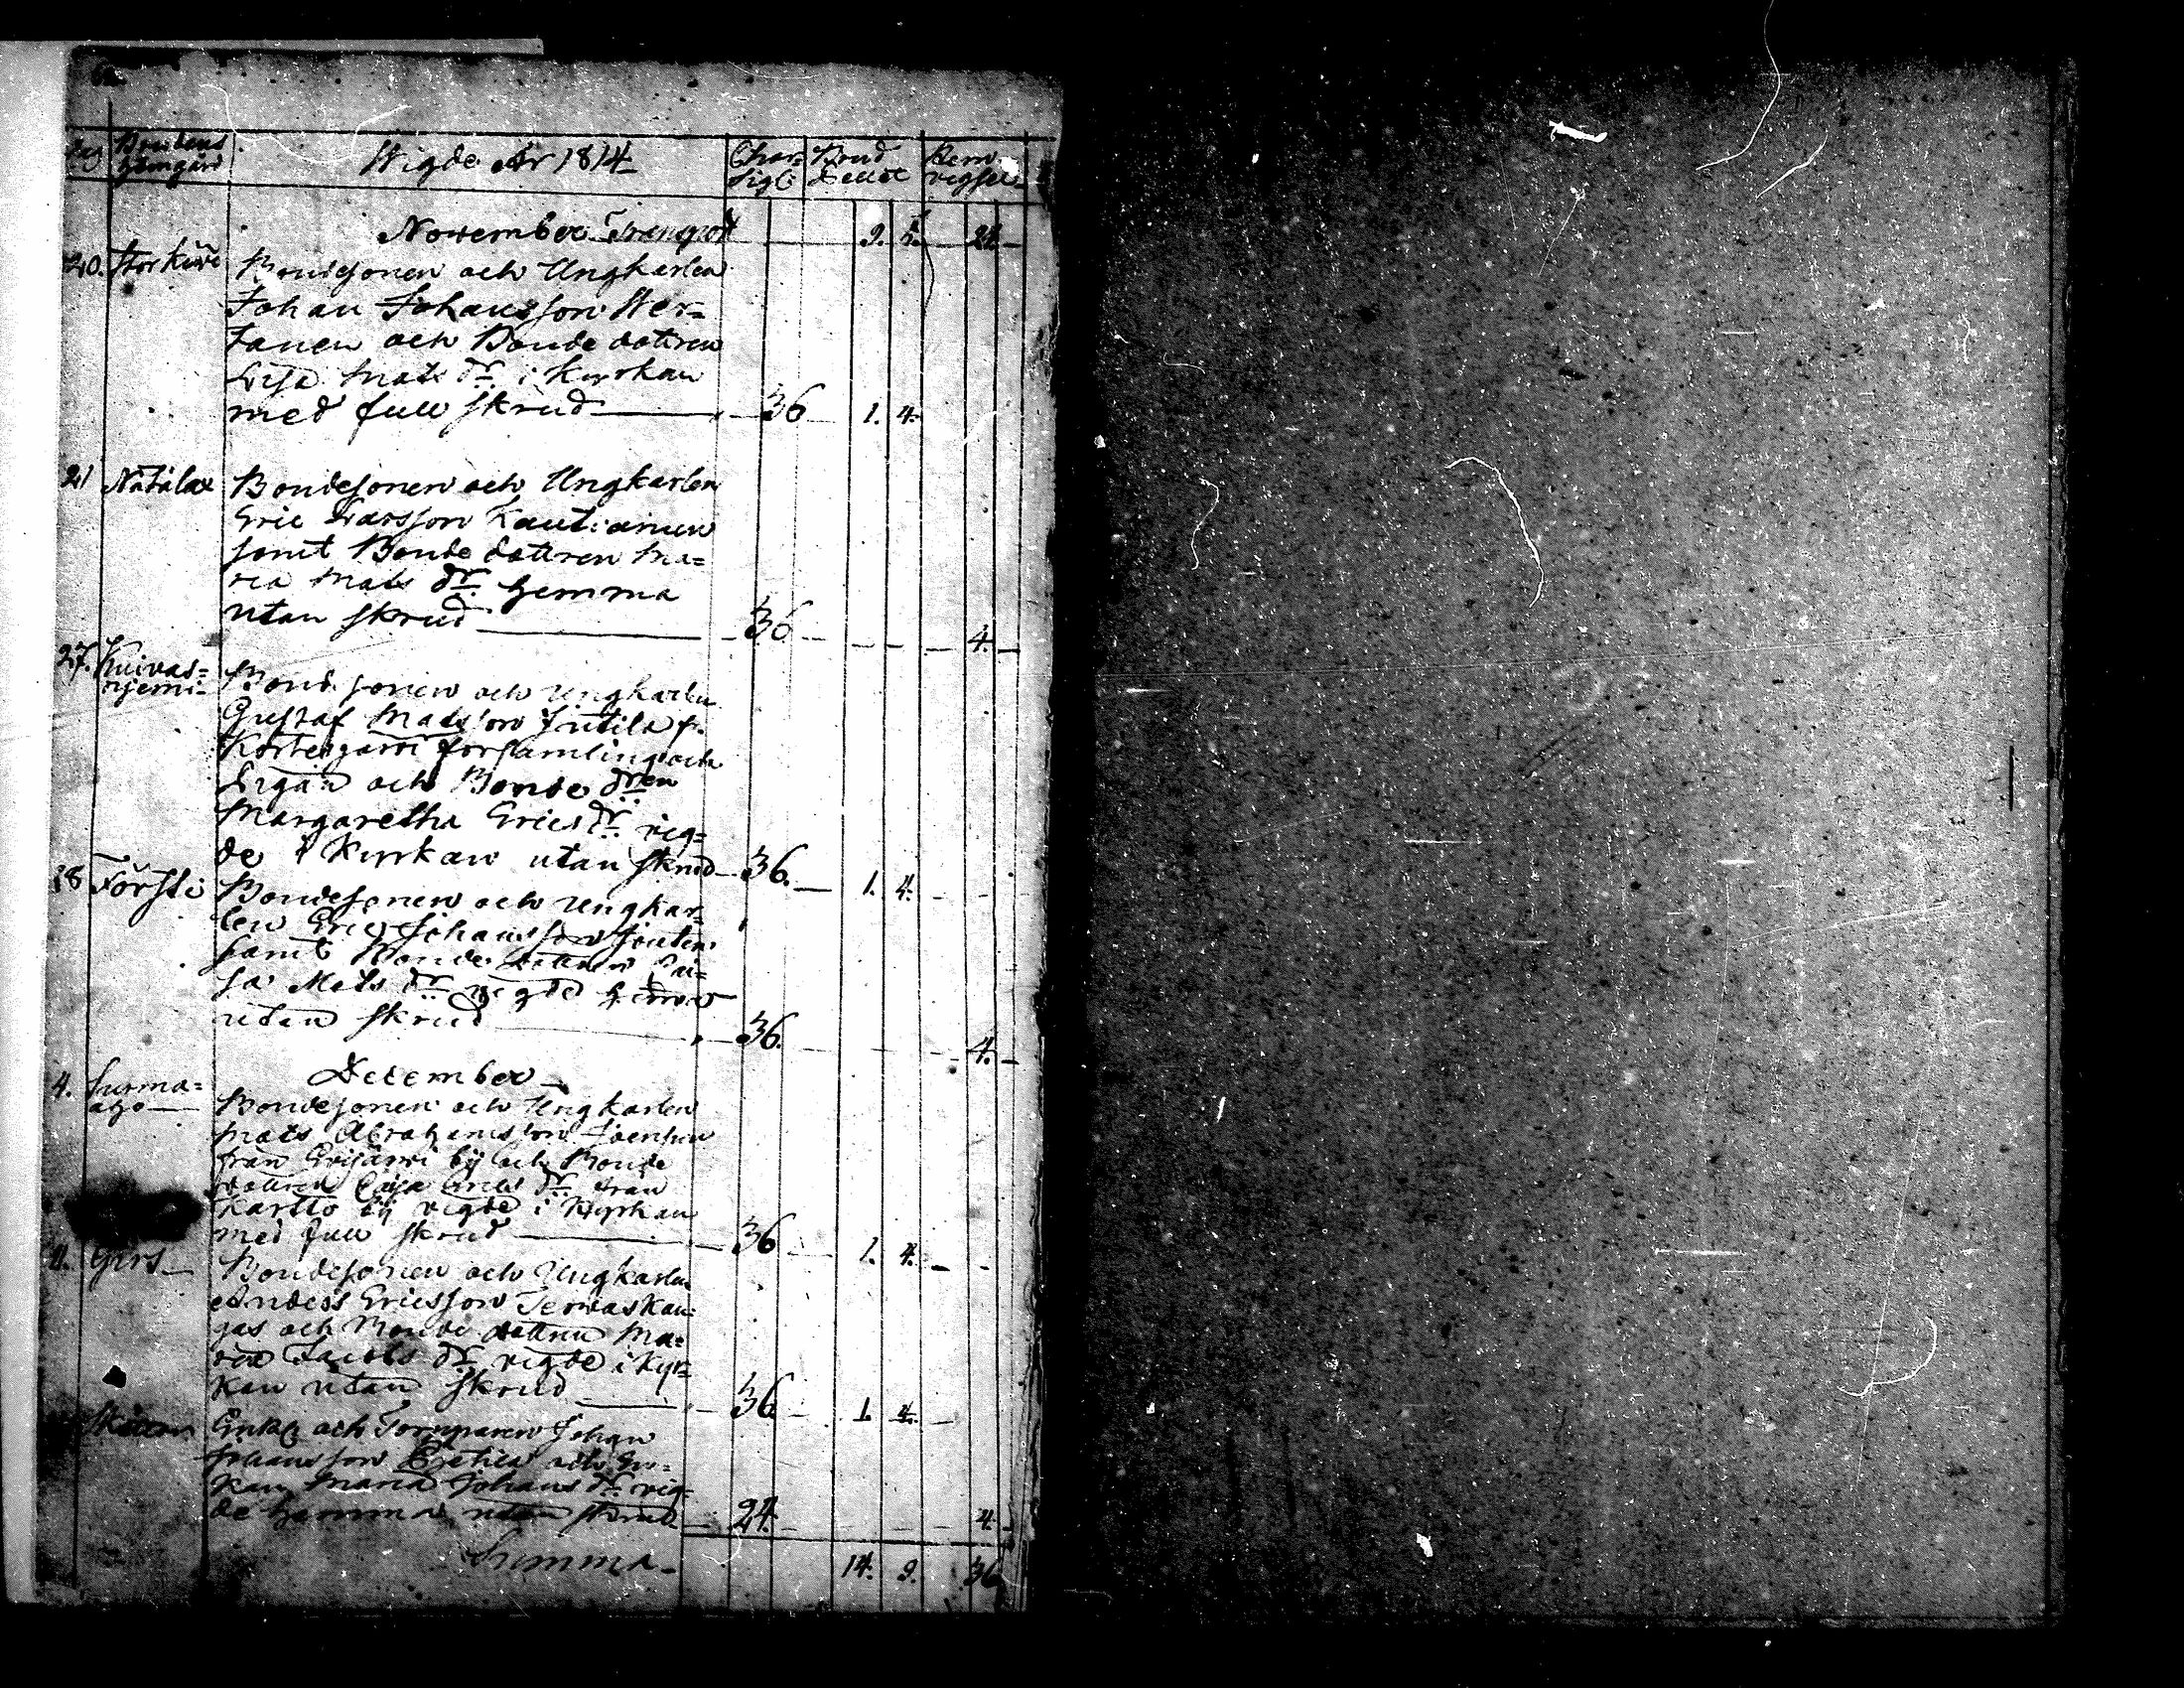 Dag Brudens hemgård Wigde År 1814 Char: Sigl: Brud Hem vigsel
November Transport 9. 24
20. Bondesonen och Ungkarlen
Johan Johansson Her=
tanen och Bonde dottren
Lisa Mats dr. i Kyrkan
med full skrud 36 1. 4.
21 Bondesonen och Ungkarlen
Eric Larsson Kautiainen
samt Bonde dottren Ma=
ria Mats dr. hemma
utan skrud 36 4.
27. Kuivas=
njemi Bondesonen och Ungkarlen
Gustaf Matsson Jutila fr.
Kortesjärvi församling och
och Bonde dren
Margaretha Erics dr. vig=
de i Kyrkan utan skrud 36. 1. 4.
28 Försti Bondesonen och Ungkar=
len Eric Johansson
samt Bonde dottren Cai=
sa Mats dr. vigde hemma
utan skrud 36. 4.
December
4. Surma=
aho Bondesonen och Ungkarlen
Mats Abrahamsson
från Evijärvi by och Bonde
dottren Caisa Erics dr. från
Kartto by vigde i Kyrkan
med full skrud 36 1. 4.
Girs Bondesonen och Ungkarlen
Anders Ericsson Terwaskan=
gas och Bonde dottren Ma=
ria Jacobs dr. vigde i Kyr=
kan utan skrud 36 1. 4.
Enkl. och Torpparen Johan
Johansson och En=
kan Maria Johans dr. vig=
de hemma utan skrud 24. 4.
Summa 14. 9. 36